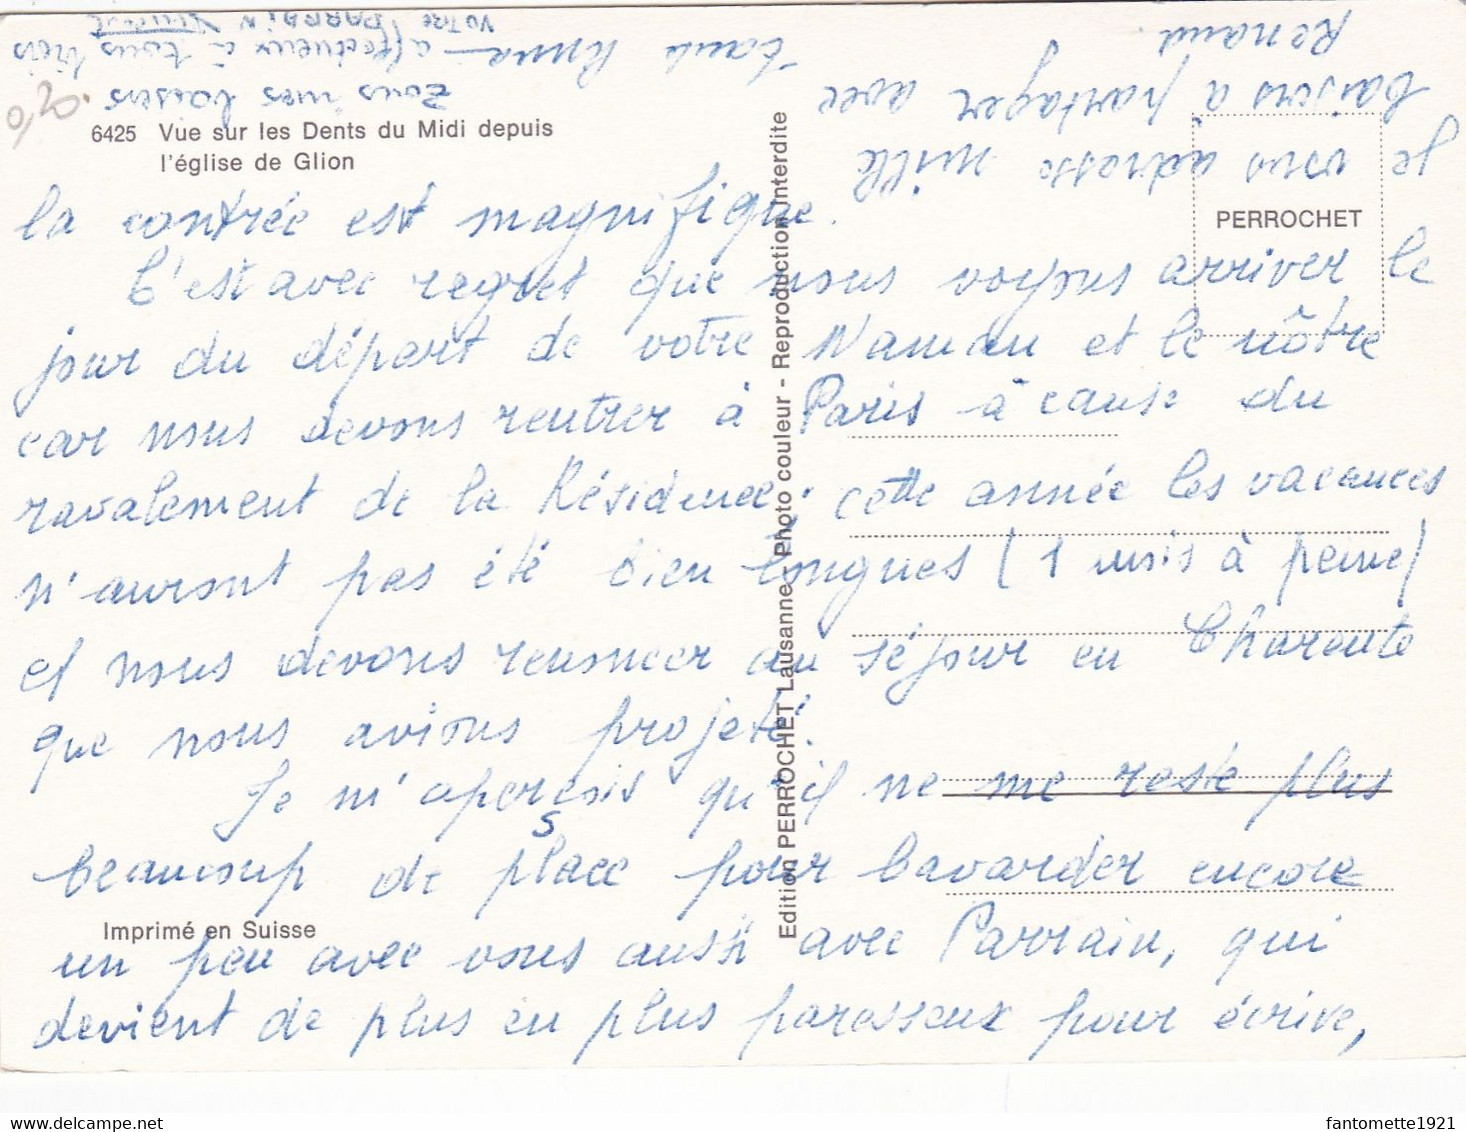 6425 Vue sur les Dents du Midi depuis
l'église de Glion
la contrée est magnifique.
C'est avec regret que nous voyons arriver le
jour du départ de votre Maman et le nôtre
car nous devons rentrer à Paris à cause du
ravalement de la Résidence; cette année les vacances
n'auront pas été bien longues (1 mois à peine)
et nous devons renoncer au séjour en Charente
que nous avions projeté.
Je m'apersois qu'il ne me reste plus
beaucoup de place pour bavarder encore
un peu avec vous aussi avec Parrain, qui
devient de plus en plus paresseux pour écrire,
Je vous adresse mille
baisers à partager avec
Renaud.
tous mes baisers
affectueux à tous trois
VOTRE PARRAIN
PERROCHET
Edition PERROCHET Lausanne - Photo couleur - Reproduction Interdite
Imprimé en Suisse
fantomette1921